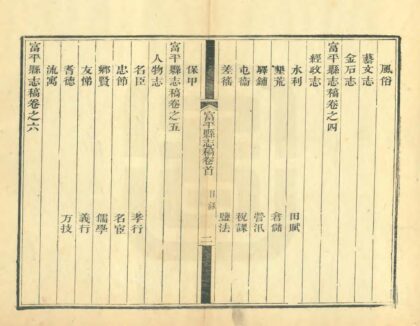 風俗
藝文志
金石志
富平縣志稿卷之四
經政志
水利 田賦
墾荒 倉儲
驛鋪 營汛
屯衞 稅課
差徭 鹽法
保甲
富平縣志稿卷首 目錄 二
富平縣志稿卷之五
人物志
名臣 孝行
忠節 名宦
鄉賢 儒學
友悌 義行
耆德 方技
流寓
富平縣志稿卷之六